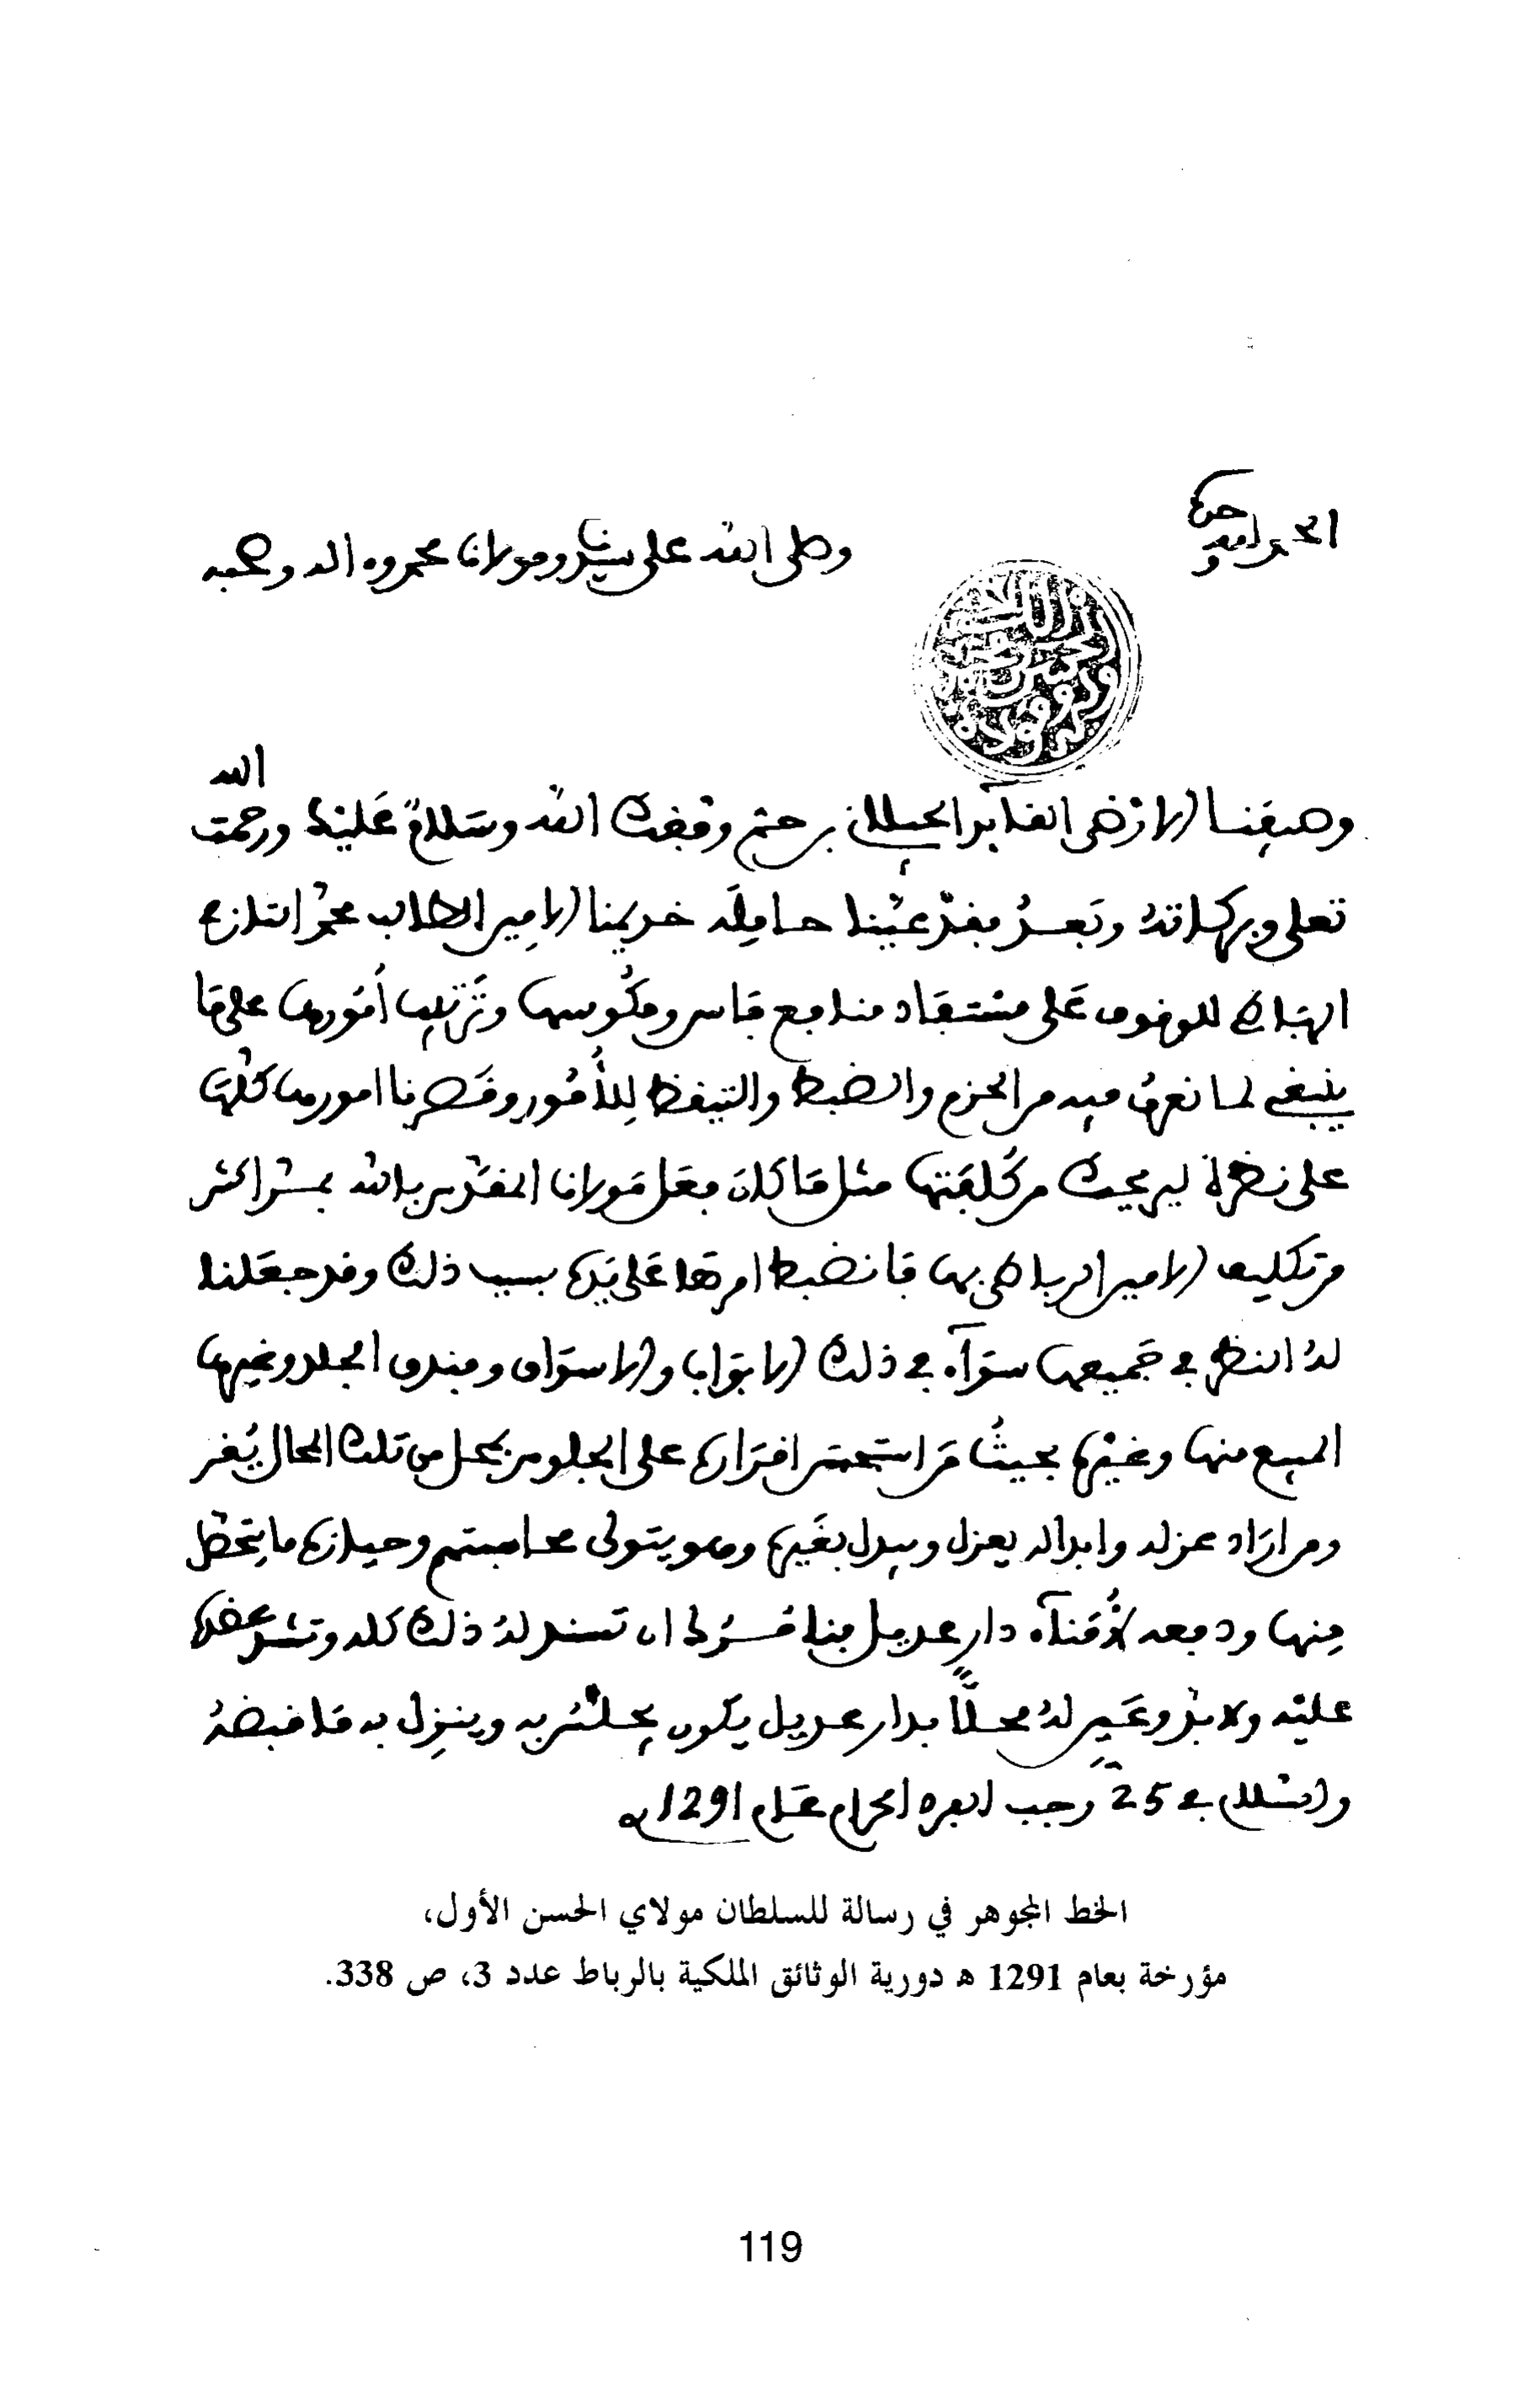 الحمد لله وحده
وصلى الله على سيدنا ومولانا محمد وءاله وصحبه
وصيفنا الارضى القائد الجيلاني بن حم وفقك الله وسلام عليك ورحمت الله
تعلى وبركاته وبعد فقد عينا حامله خديمنا الامين الطالب محمد التازي
الرباطي للوقوف على مستفاد منافع فاس ومكوسها وترتيب أمورها على ما
ينبغي لما نعرف فيه من الحزم والضبط والتيقظ للأمور وقصرنا امورها كلها
على نظره ليريحك من كلفتها مثل ما كان فعل مولانا المقدس بالله بمراكش
من تكليف الامين الرباطي بها فانضبط امرها على يده بسبب ذلك وقد جعلنا
له النظر في جميعها سوآء في ذلك الابواب والاسواق وفندق الجلد وغيرها
المبيع منها وغيره بحيث من استحسن اقراره على الجلوس بمحل من تلك المحال يقر
ومن اراد عزله وابداله يعزل ويبدل بغيره وهو يتولى محاسبتهم وحيازة ما يتحصل
منها ودفعه لأمنآء دار عديل فنامرك ان تسند له ذلك كله وتشد عضده
عليه ولا بد وعين له محلا بدار عديل يكون يجلس به وينزل به ما قبضه
والسلام في 25 رجب الفرد الحرام عام 1291
الخط المجوهر في رسالة للسلطان مولاي الحسن الأول،
مؤرخة بعام 1291 ه دورية الوثائق الملكية بالرباط عدد 3، ص 338.
119